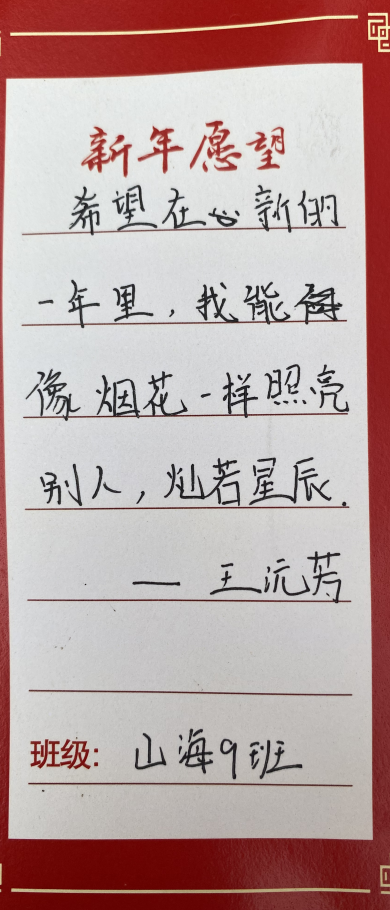 新年愿望
希望在新的
一年里，我能
像烟花一样照亮
别人，灿若星辰.
— 王沅芳
班级：山海9班